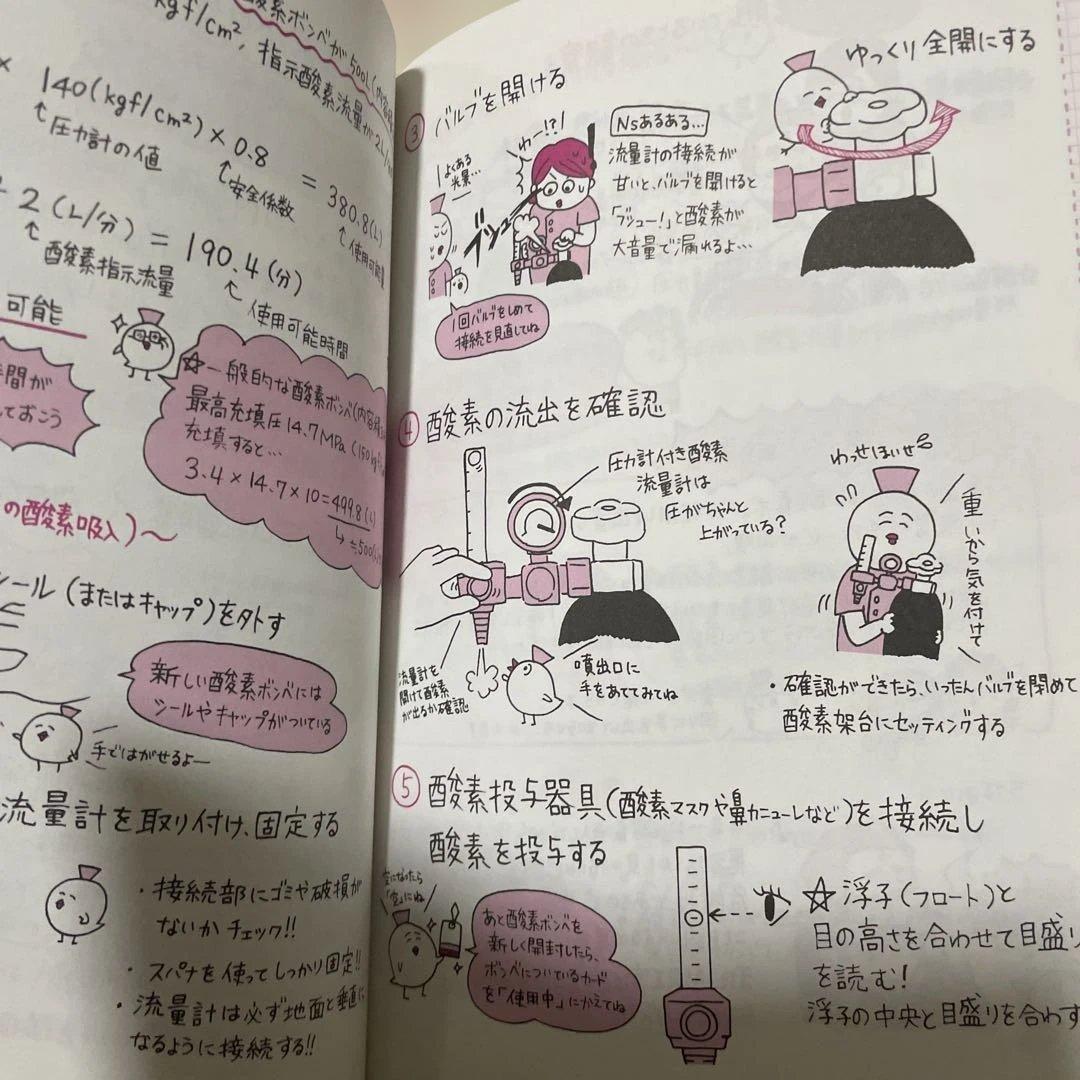 酸素ボンベが500L(内容
kgf/cm², 指示酸素流量が2L/
× 140(kgf/cm²)×0.8
圧力計の値
安全係数
= 380.8(L)
使用可能量
÷ 2(L/分) = 190.4(分)
酸素指示流量
使用可能時間
可能
間が
ておこう
☆一般的な酸素ボンベ(内容
最高充填圧14.7MPa(150kgf/
充填すると…
3.4×14.7×10=499.8(L)
↳≒500(
の酸素吸入)～
シール(またはキャップ)を外す
新しい酸素ボンベには
シールやキャップがついている
手ではがせるよー
流量計を取り付け、固定する
・接続部にゴミや破損が
ないかチェック!!
・スパナを使ってしっかり固定!!
・流量計は必ず地面と垂直に
なるように接続する!!
③ バルブを開ける
よくある
光景…
わー!?
ブシュー
Nsあるある…
流量計の接続が
甘いと、バルブを開けると
「ブシュー!」と酸素が
大音量で漏れるよ…
1回バルブをしめて
接続を見直してね
ゆっくり全開にする
④ 酸素の流出を確認
圧力計付き酸素
流量計は
圧がちゃんと
上がっている?
流量計を
開けて酸素
が出るか確認
噴出口に
手をあててみてね
わっせほいせ
重いから気を付けて
・確認ができたら、いったんバルブを閉めて
酸素架台にセッティングする
⑤ 酸素投与器具(酸素マスクや鼻カニューレなど)を接続し
酸素を投与する
空になったら
「空」にね
あと酸素ボンベを
新しく開封したら、
ボンベについているカード
を「使用中」にかえてね
☆浮子(フロート)と
目の高さを合わせて目盛り
を読む!
浮子の中央と目盛りを合わす